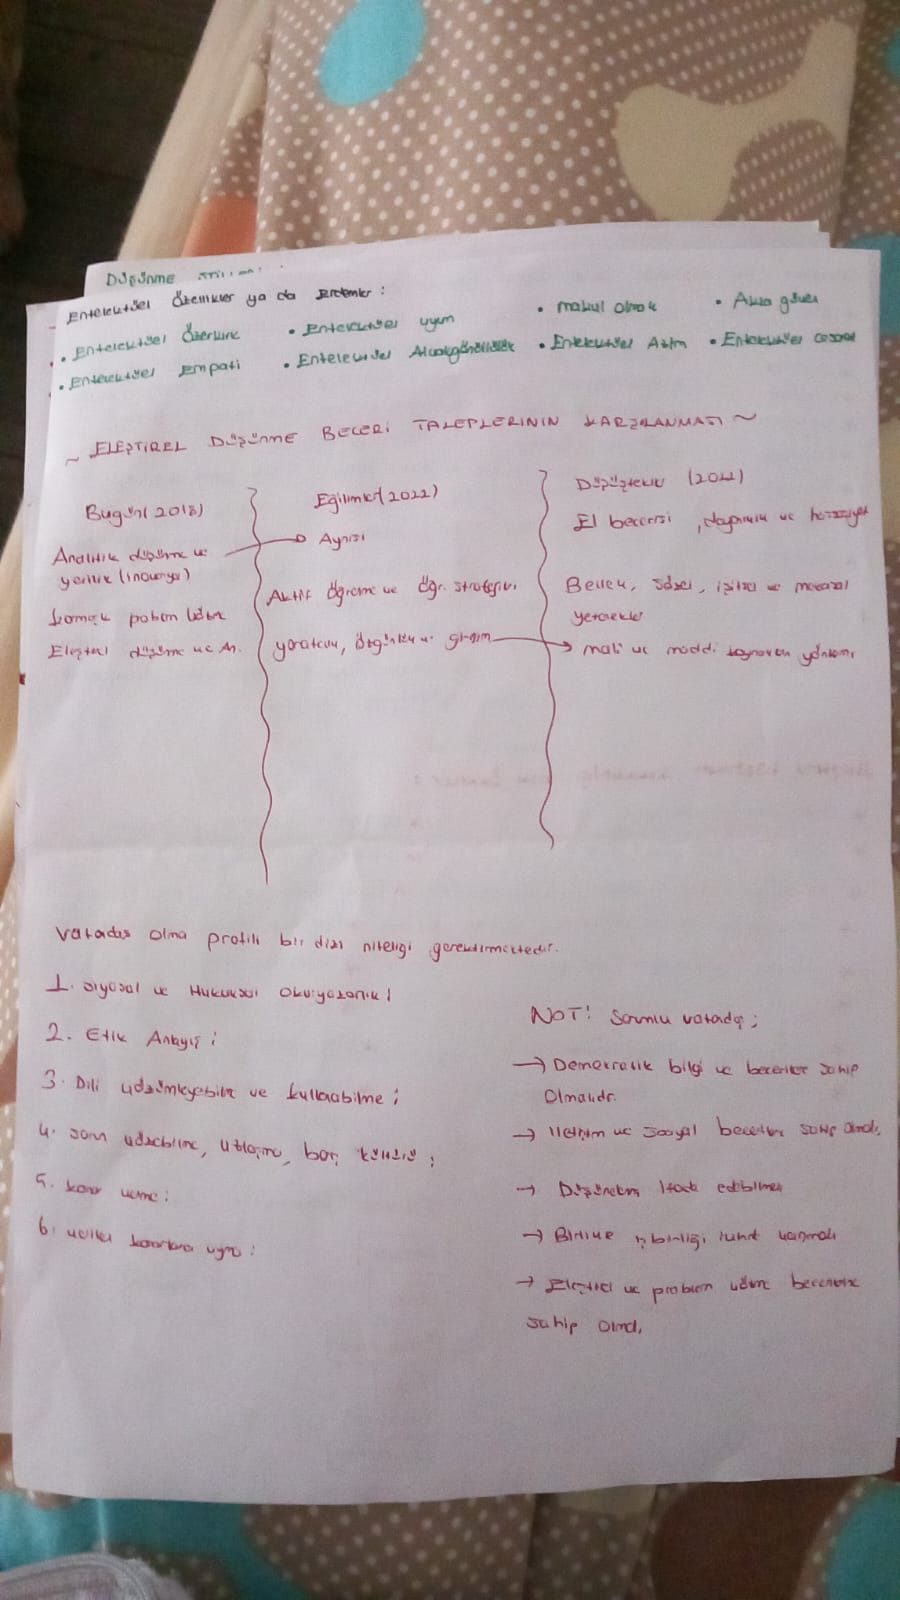 Düşünme
Entelektüel Özellikler ya da Erdemler:
• Entelektüel Özerklik • Entelektüel uyum • makul olmak • Akla güven
• Entelektüel Empati • Entelektüel Alçakgönüllülük • Entelektüel Azim • Entelektüel cesaret
~ ELEŞTİREL DÜŞÜNME BECERİ TALEPLERİNİN KARŞILANMASI ~
Bugün (2018)
Analitik düşünme ve
yenilik (inovasyon)
karmaşık problem çözme
Eleştirel düşünme ve An.
Eğilimler (2022)
Aynısı
Aktif öğrenme ve öğr. stratejileri
yaratıcılık, özgünlük ve girişim
Düşüşteki (2022)
El becerisi, dayanıklılık ve hassasiyet
Bellek, sözel, işitsel ve mekansal
yetenekler
mali ve maddi kaynakların yönetimi
Vatadaş olma profili bir dizi niteliği gerektirmektedir.
1. Siyasal ve Hukuksal Okuryazarlık!
2. Etik Anlayış:
3. Dili çözümleyebilme ve kullanabilme;
4. sorun çözebilme, Uzlaşma, barış kültürü;
5. karar verme:
6. verilen kararlara uyma:
NOT! Sorumlu vatadaş;
→ Demokratik bilgi ve beceriler sahip
Olmalıdır.
→ Iletişim ve sosyal beceriler sahip olmalı,
→ Düşüncelerini ifade edebilmeli
→ Birlikte işbirliği yapmalı
→ Eleştirel ve problem çözme becerisine
sahip olmalı,